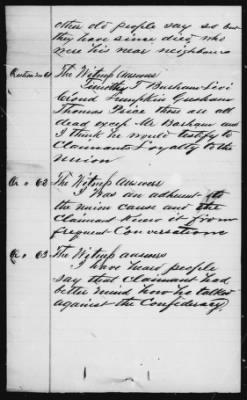 other old people say so but
they have since died who
were his near neighbours
Question no 61 The Witness Answers
Timothy J Barham Levi
Cloud Lumpkin Gresham
Thomas Price they are all
dead except Mr Barham and
I think he would testify to
Claimants Loyalty to the
Union
Qu no 62 The Witness Answers
I was an adherent to
the union cause and the
Claimant knew it from
frequent Conversations
Qu no 63 The Witness answers
I have heard people
say that Claimant had
better mind how he talked
against the Confederacy